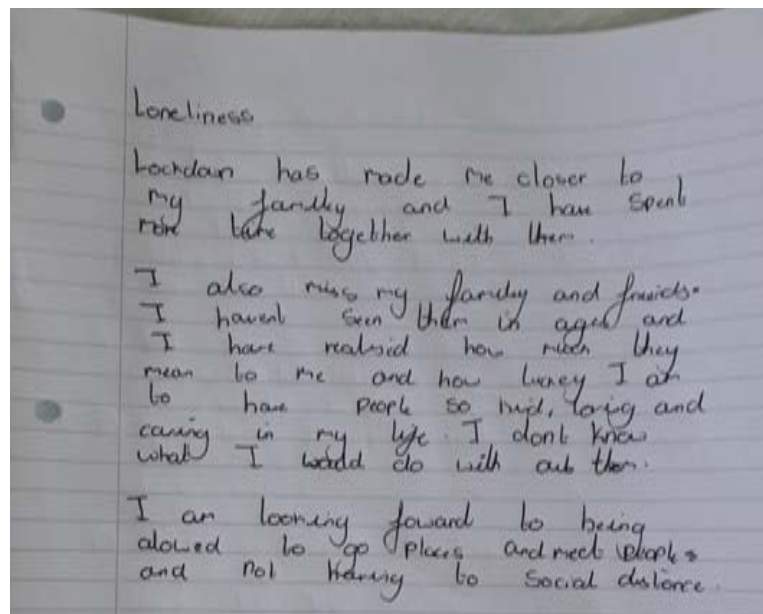 Loneliness
Lockdown has made me closer to
my family and I have spent
more time together with them.
I also miss my family and friends.
I havent seen them in ages and
I have realsid how much they
mean to me and how luckey I am
to have people so kind, loving and
caring in my life. I dont know
what I would do with out them.
I am looking foward to being
alowed to go places and meet people
and not having to social distance.